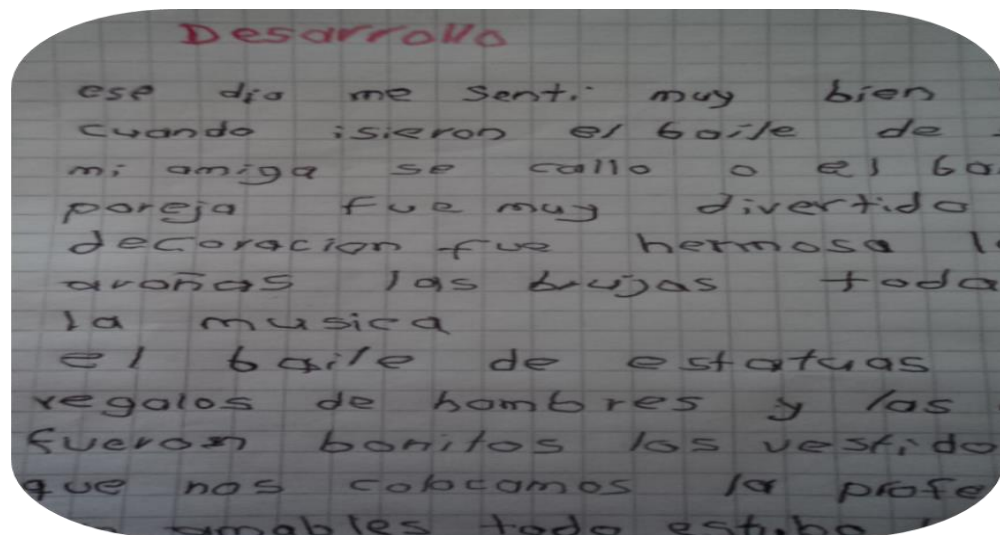 Desarrollo
ese dia me senti muy bien
cuando isieron el baile de
mi amiga se callo o el
pareja fue muy divertido
decoracion fue hermosa
arañas las brujas toda
la musica
el baile de estatuas
regalos de hombres y las
fueron bonitos los vestido
que nos colocamos la profe
amables todo estubo